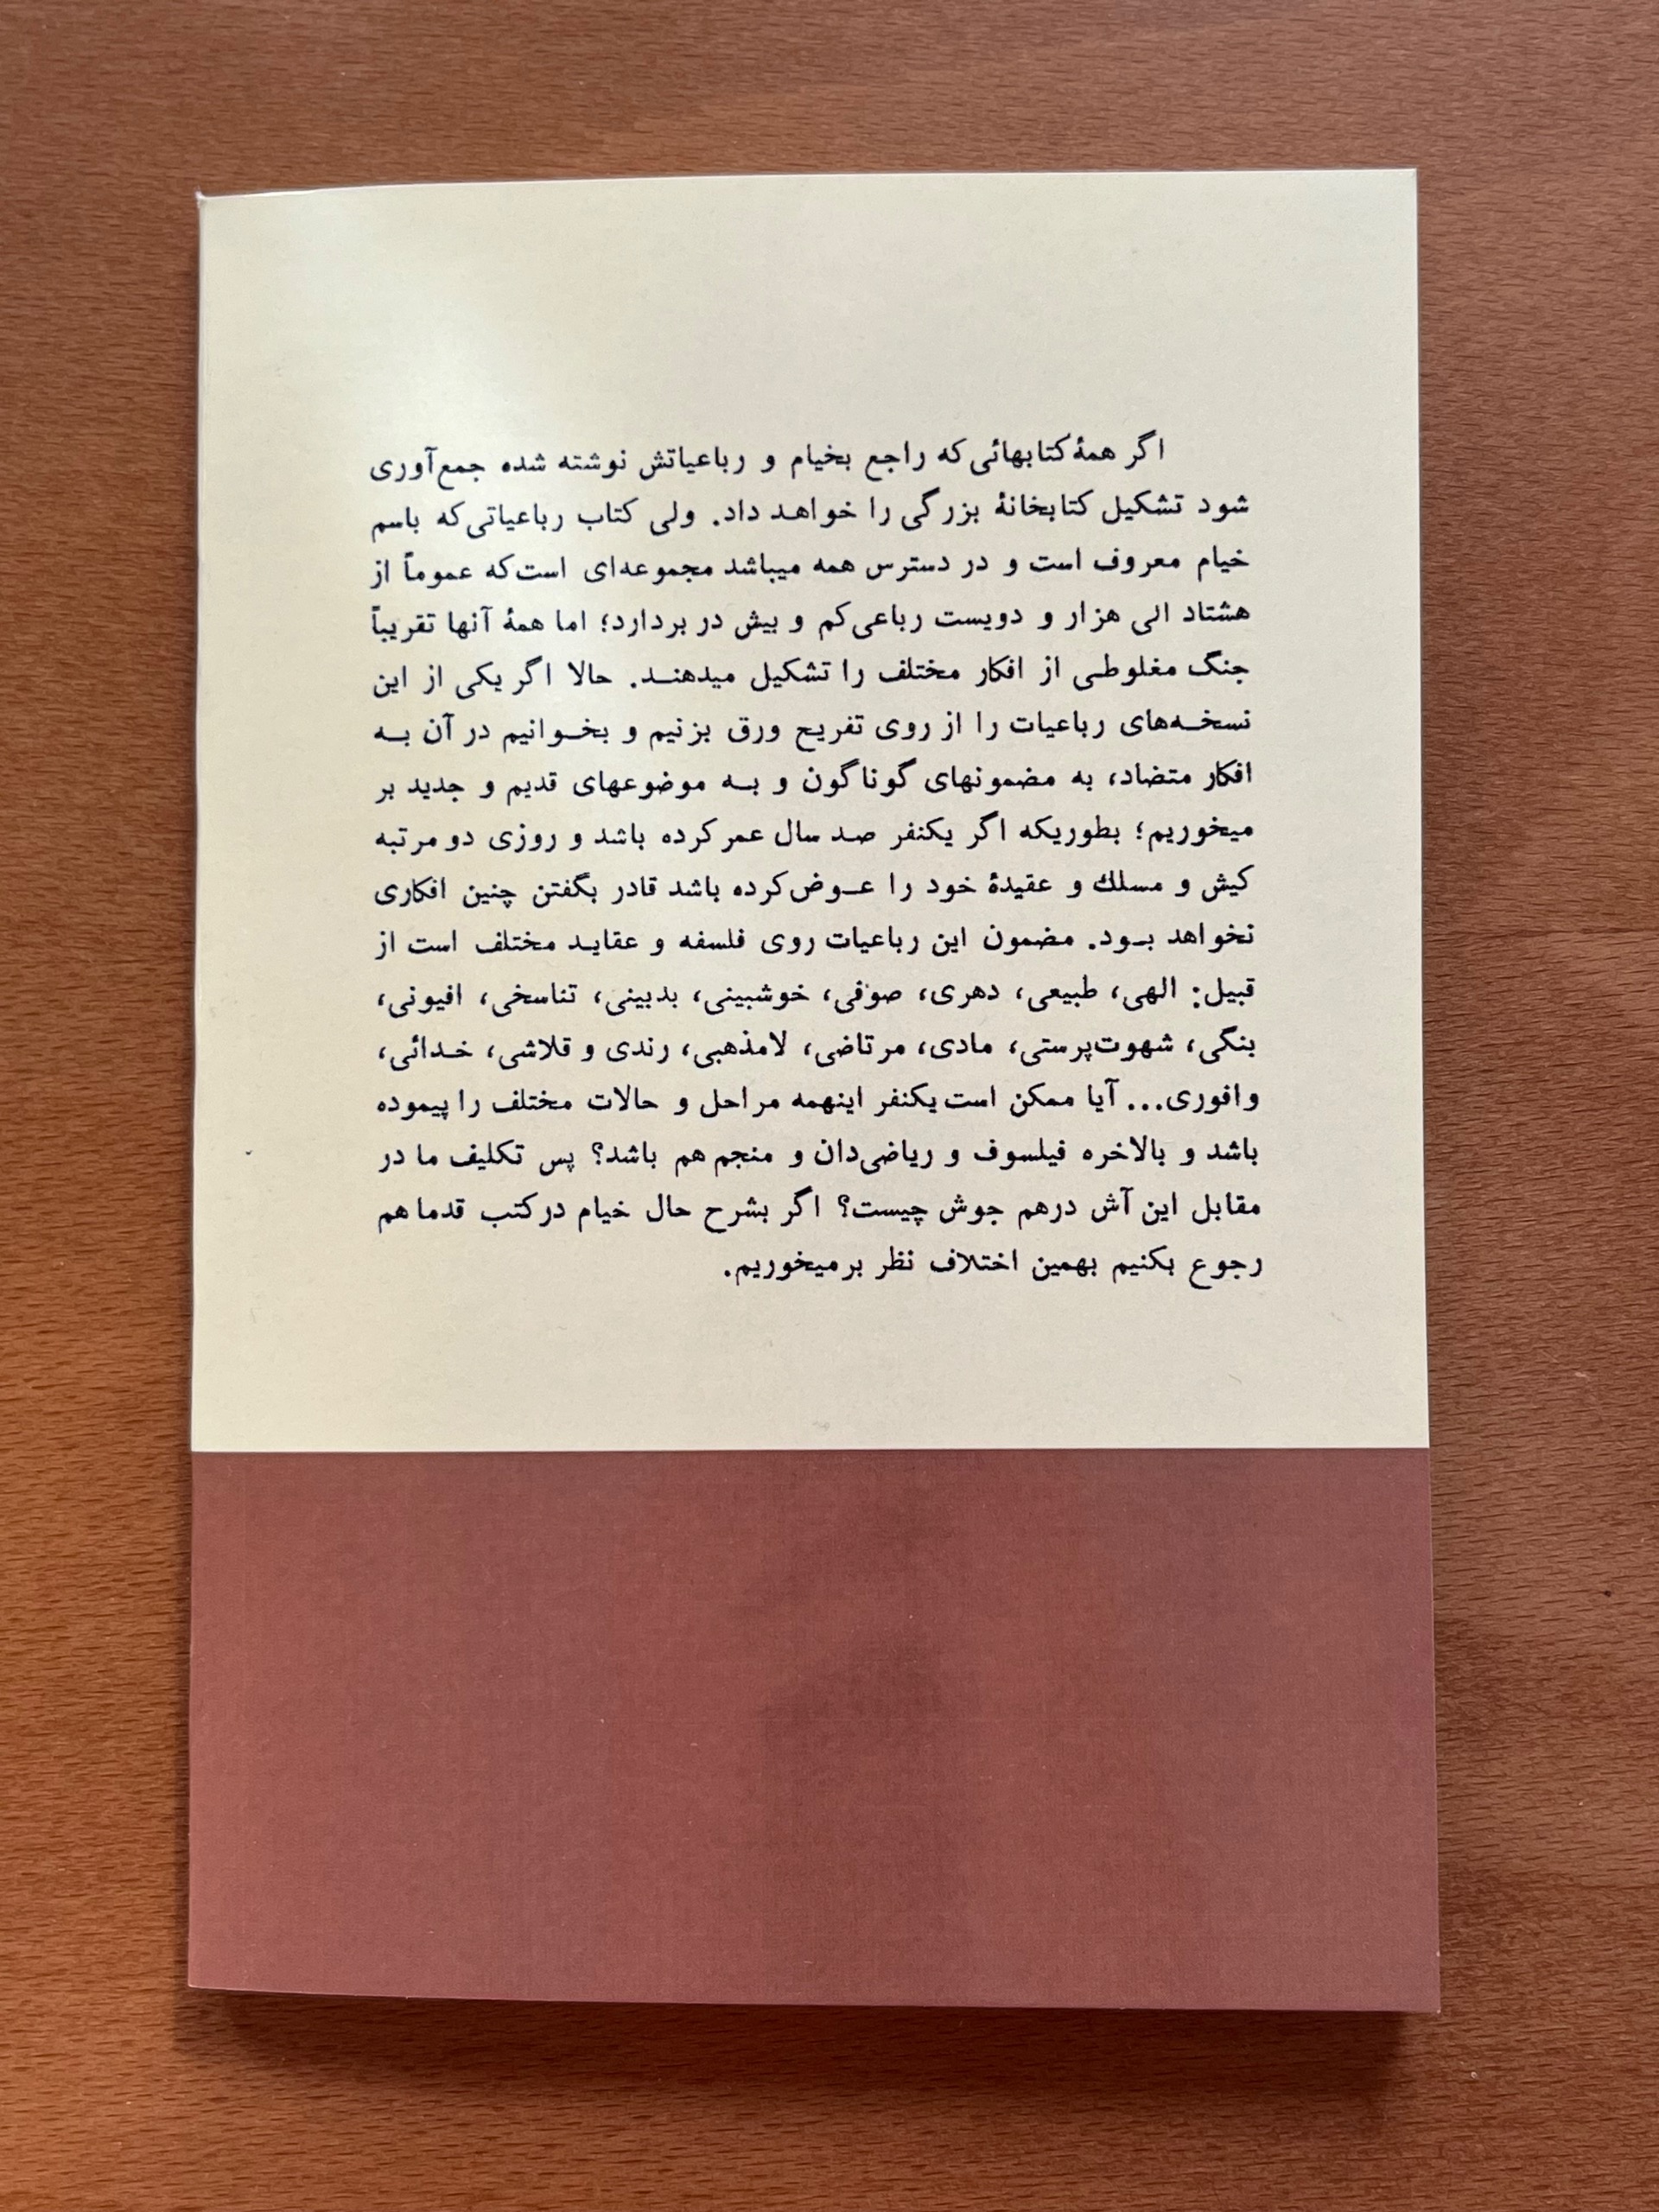 اگر همهٔ کتابهائی که راجع بخیام و رباعیاتش نوشته شده جمع‌آوری
شود تشکیل کتابخانهٔ بزرگی را خواهد داد. ولی کتاب رباعیاتی که باسم
خیام معروف است و در دسترس همه میباشد مجموعه‌ای است که عموماً از
هشتاد الی هزار و دویست رباعی کم و بیش در بردارد؛ اما همهٔ آنها تقریباً
جنگ مغلوطی از افکار مختلف را تشکیل میدهند. حالا اگر یکی از این
نسخه‌های رباعیات را از روی تفریح ورق بزنیم و بخوانیم در آن به
افکار متضاد، به مضمونهای گوناگون و به موضوعهای قدیم و جدید بر
میخوریم؛ بطوریکه اگر یکنفر صد سال عمر کرده باشد و روزی دو مرتبه
کیش و مسلك و عقیدهٔ خود را عوض کرده باشد قادر بگفتن چنین افکاری
نخواهد بود. مضمون این رباعیات روی فلسفه و عقاید مختلف است از
قبیل: الهی، طبیعی، دهری، صوفی، خوشبینی، بدبینی، تناسخی، افیونی،
بنگی، شهوت‌پرستی، مادی، مرتاضی، لامذهبی، رندی و قلاشی، خدائی،
وافوری... آیا ممکن است یکنفر اینهمه مراحل و حالات مختلف را پیموده
باشد و بالاخره فیلسوف و ریاضی‌دان و منجم هم باشد؟ پس تکلیف ما در
مقابل این آش درهم جوش چیست؟ اگر بشرح حال خیام در کتب قدما هم
رجوع بکنیم بهمین اختلاف نظر برمیخوریم.